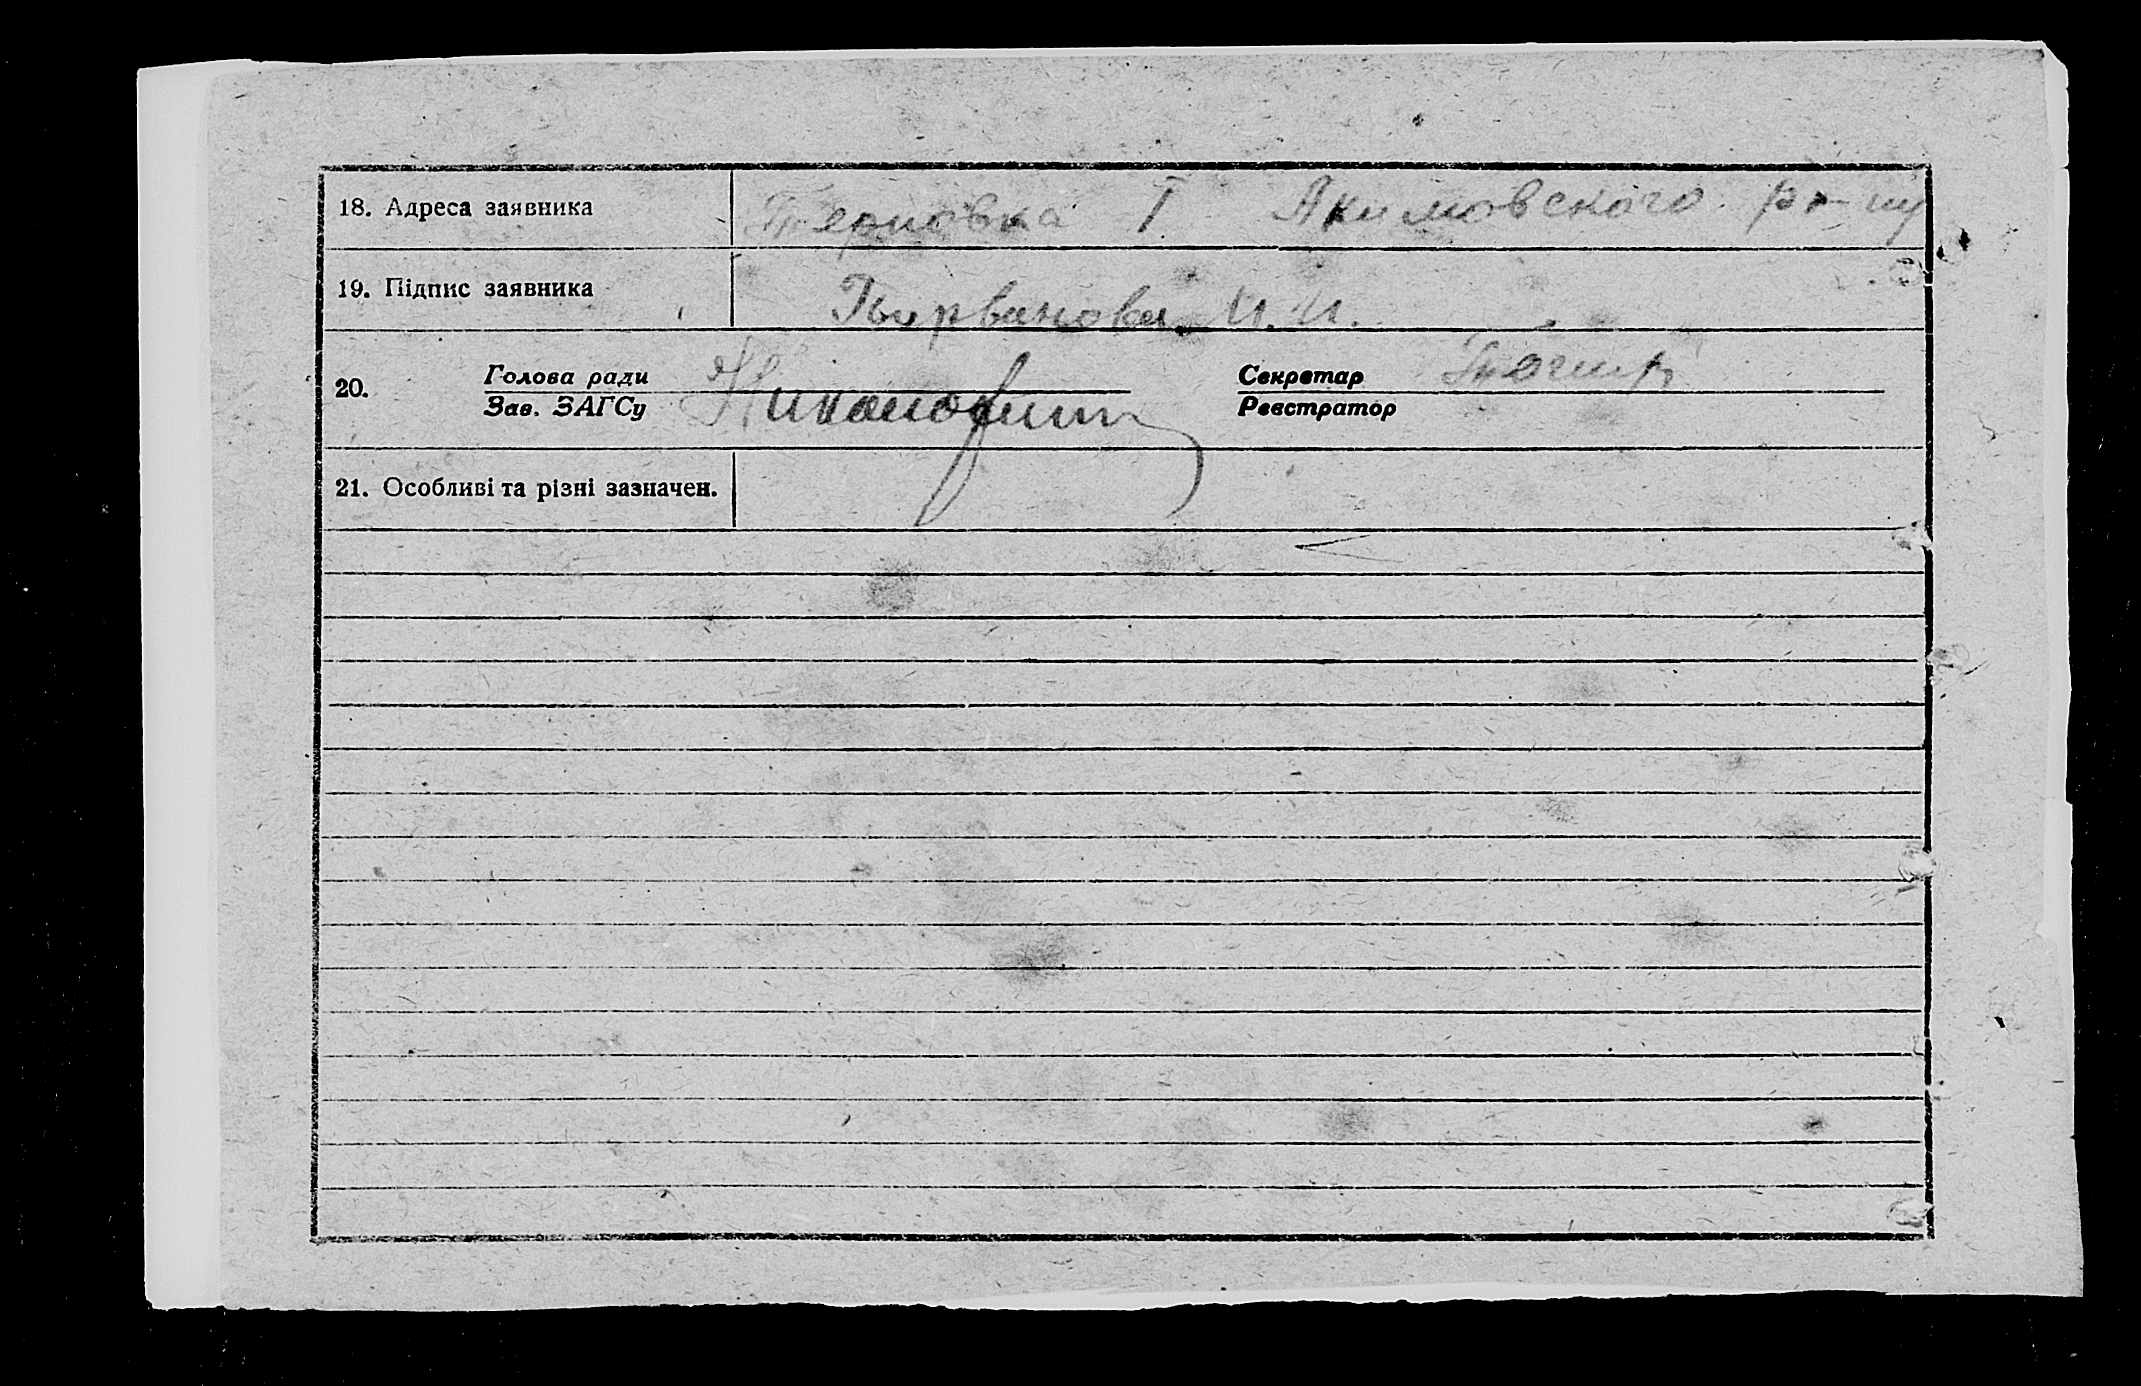 18. Адреса заявника Терновка I Акимовского р-ну
19. Підпис заявника Пырванова И. И.
20. Голова ради Секретар
Зав. ЗАГСу Реєстратор
21. Особливі та різні зазначен.